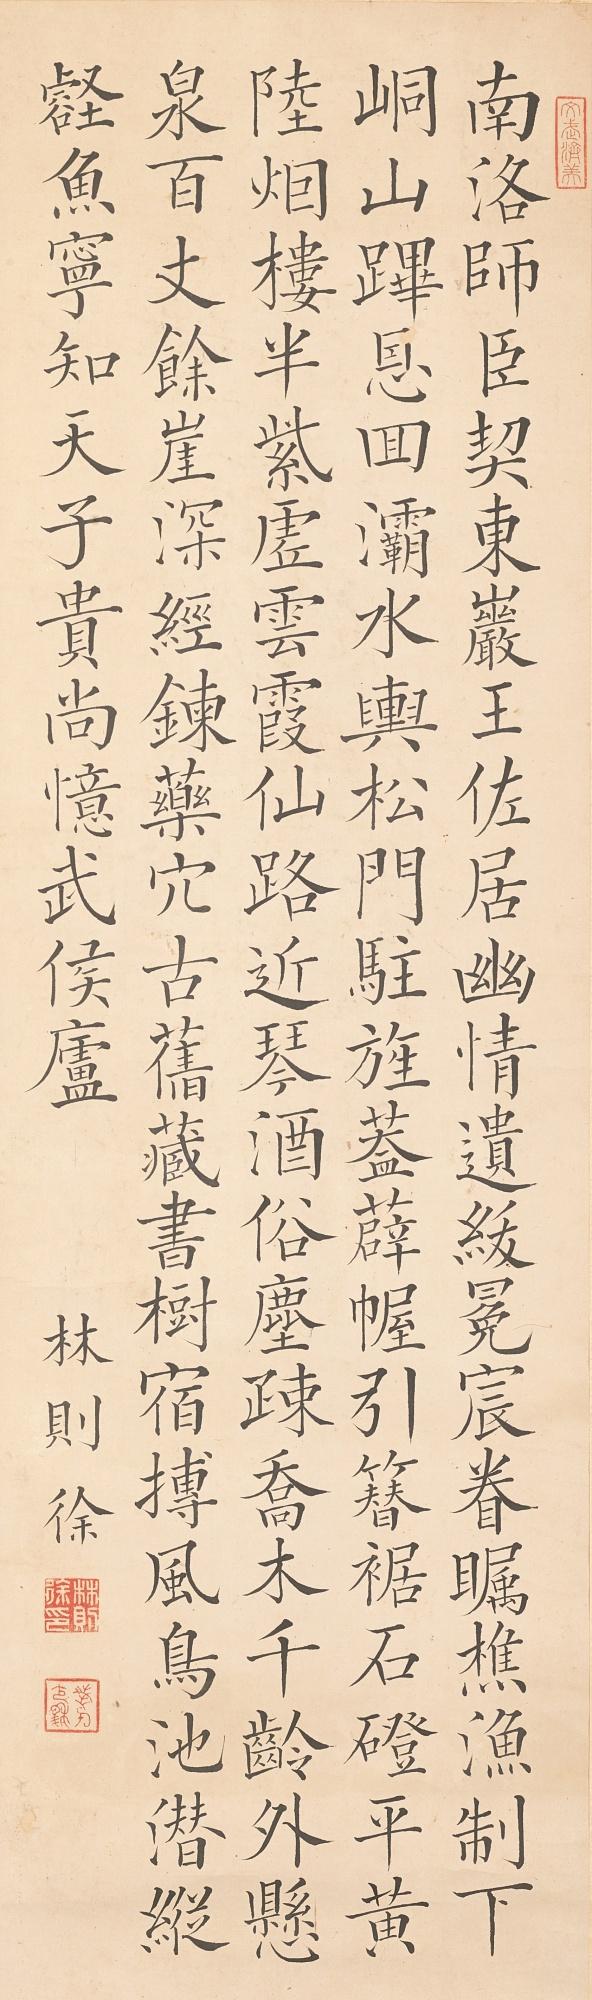 南洛師臣契東巖王佐居幽情遺紱冕宸眷矚樵漁制下
峒山蹕恩囬灞水輿松門駐旌蓋薜幄引簪裾石磴平黃
陸烟樓半紫虛雲霞仙路近琴酒俗塵疎喬木千齡外懸
泉百丈餘崖深經鍊藥穴古舊藏書樹宿搏風鳥池潛縱
壑魚寧知天子貴尚憶武侯廬
林則徐
林則徐印